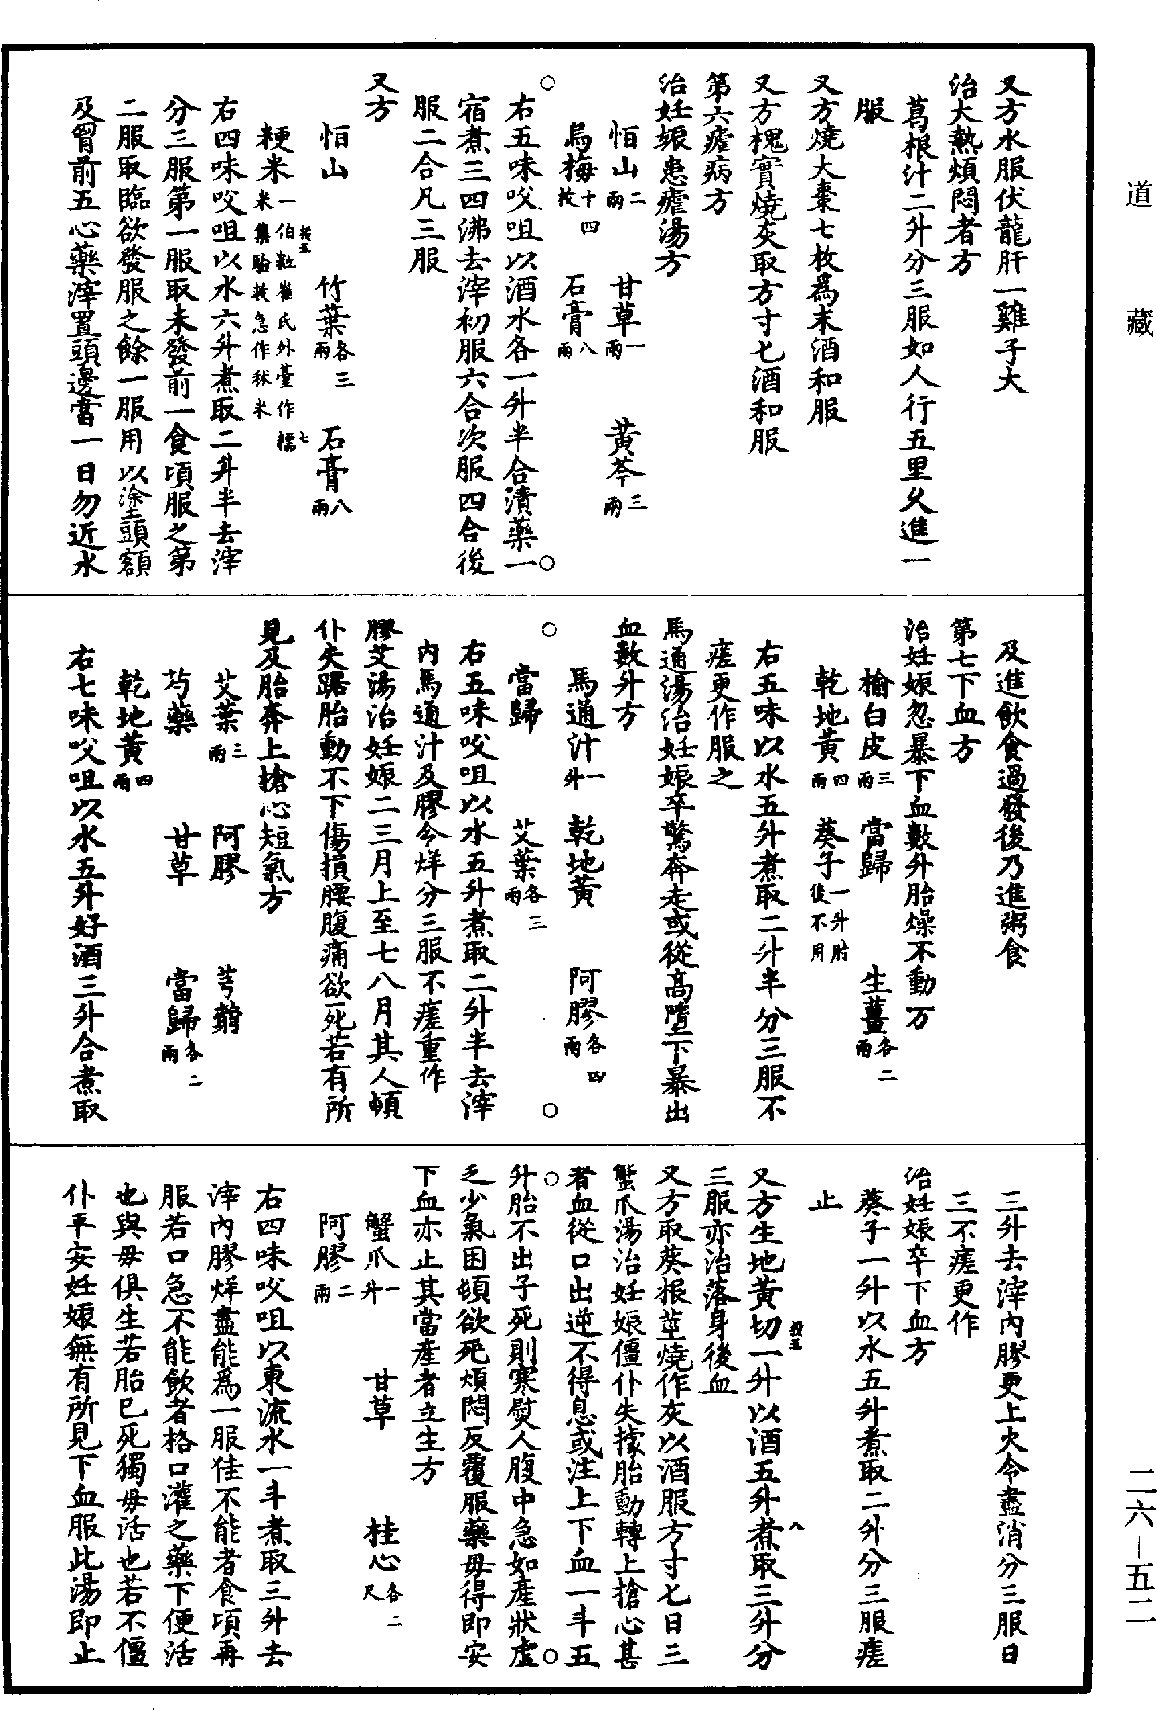 道藏
又方水服伏龍肝一雞子大
治大熱煩悶者方
葛根汁二升分三服如人行五里久進一
服
又方燒大棗七枚爲末酒和服
又方槐實燒灰取方寸匕酒和服
第六瘧病方
治妊娠患瘧湯方
恒山二兩 甘草一兩 黃芩三兩
烏梅十四枚 石膏八兩
右五味㕮咀以酒水各一升半合漬藥一
宿煮三四沸去滓初服六合次服四合後
服二合凡三服
又方
恒山 竹葉各三兩 石膏八兩
粳米一伯粒崔氏外臺作糯米集驗救急作秫米
右四味㕮咀以水六升煮取二升半去滓
分三服第一服取未發前一食頃服之第
二服取臨欲發服之餘一服用以塗頭額
及胷前五心藥滓置頭邊當一日勿近水
及進飲食過發後乃進粥食
第七下血方
治妊娠忽暴下血數升胎燥不動方
榆白皮三兩 當歸 生薑各二兩
乾地黃四兩 葵子一升肘後不用
右五味以水五升煮取二升半分三服不
瘥更作服之
馬通湯治妊娠卒驚奔走或從高墮下暴出
血數升方
馬通汁一升 乾地黃 阿膠各四兩
當歸 艾葉各三兩
右五味㕮咀以水五升煮取二升半去滓
內馬通汁及膠令烊分三服不瘥重作
膠艾湯治妊娠二三月上至七八月其人頓
仆失踞胎動不下傷損腰腹痛欲死若有所
見及胎奔上搶心短氣方
艾葉三兩 阿膠 芎藭
芍藥 甘草 當歸各二兩
乾地黃四兩
右七味㕮咀以水五升好酒三升合煮取
三升去滓內膠更上火令盡消分三服日
三不瘥更作
治妊娠卒下血方
葵子一升以水五升煮取二升分三服瘥
止
又方生地黃切一升以酒五升煮取三升分
三服亦治落身後血
又方取葵根莖燒作灰以酒服方寸匕日三
蟹爪湯治妊娠僵仆失據胎動轉上搶心甚
者血從口出逆不得息或注上下血一斗五
升胎不出子死則寒熨人腹中急如產狀虛
乏少氣困頓欲死煩悶反覆服藥毋得即安
下血亦止其當產者立生方
蟹爪一升 甘草 桂心各二尺
阿膠二兩
右四味㕮咀以東流水一斗煮取三升去
滓內膠烊盡能爲一服佳不能者食頃再
服若口急不能飲者格口灌之藥下便活
也與毋俱生若胎已死獨毋活也若不僵
仆平安妊娠無有所見下血服此湯即止
二六—五二